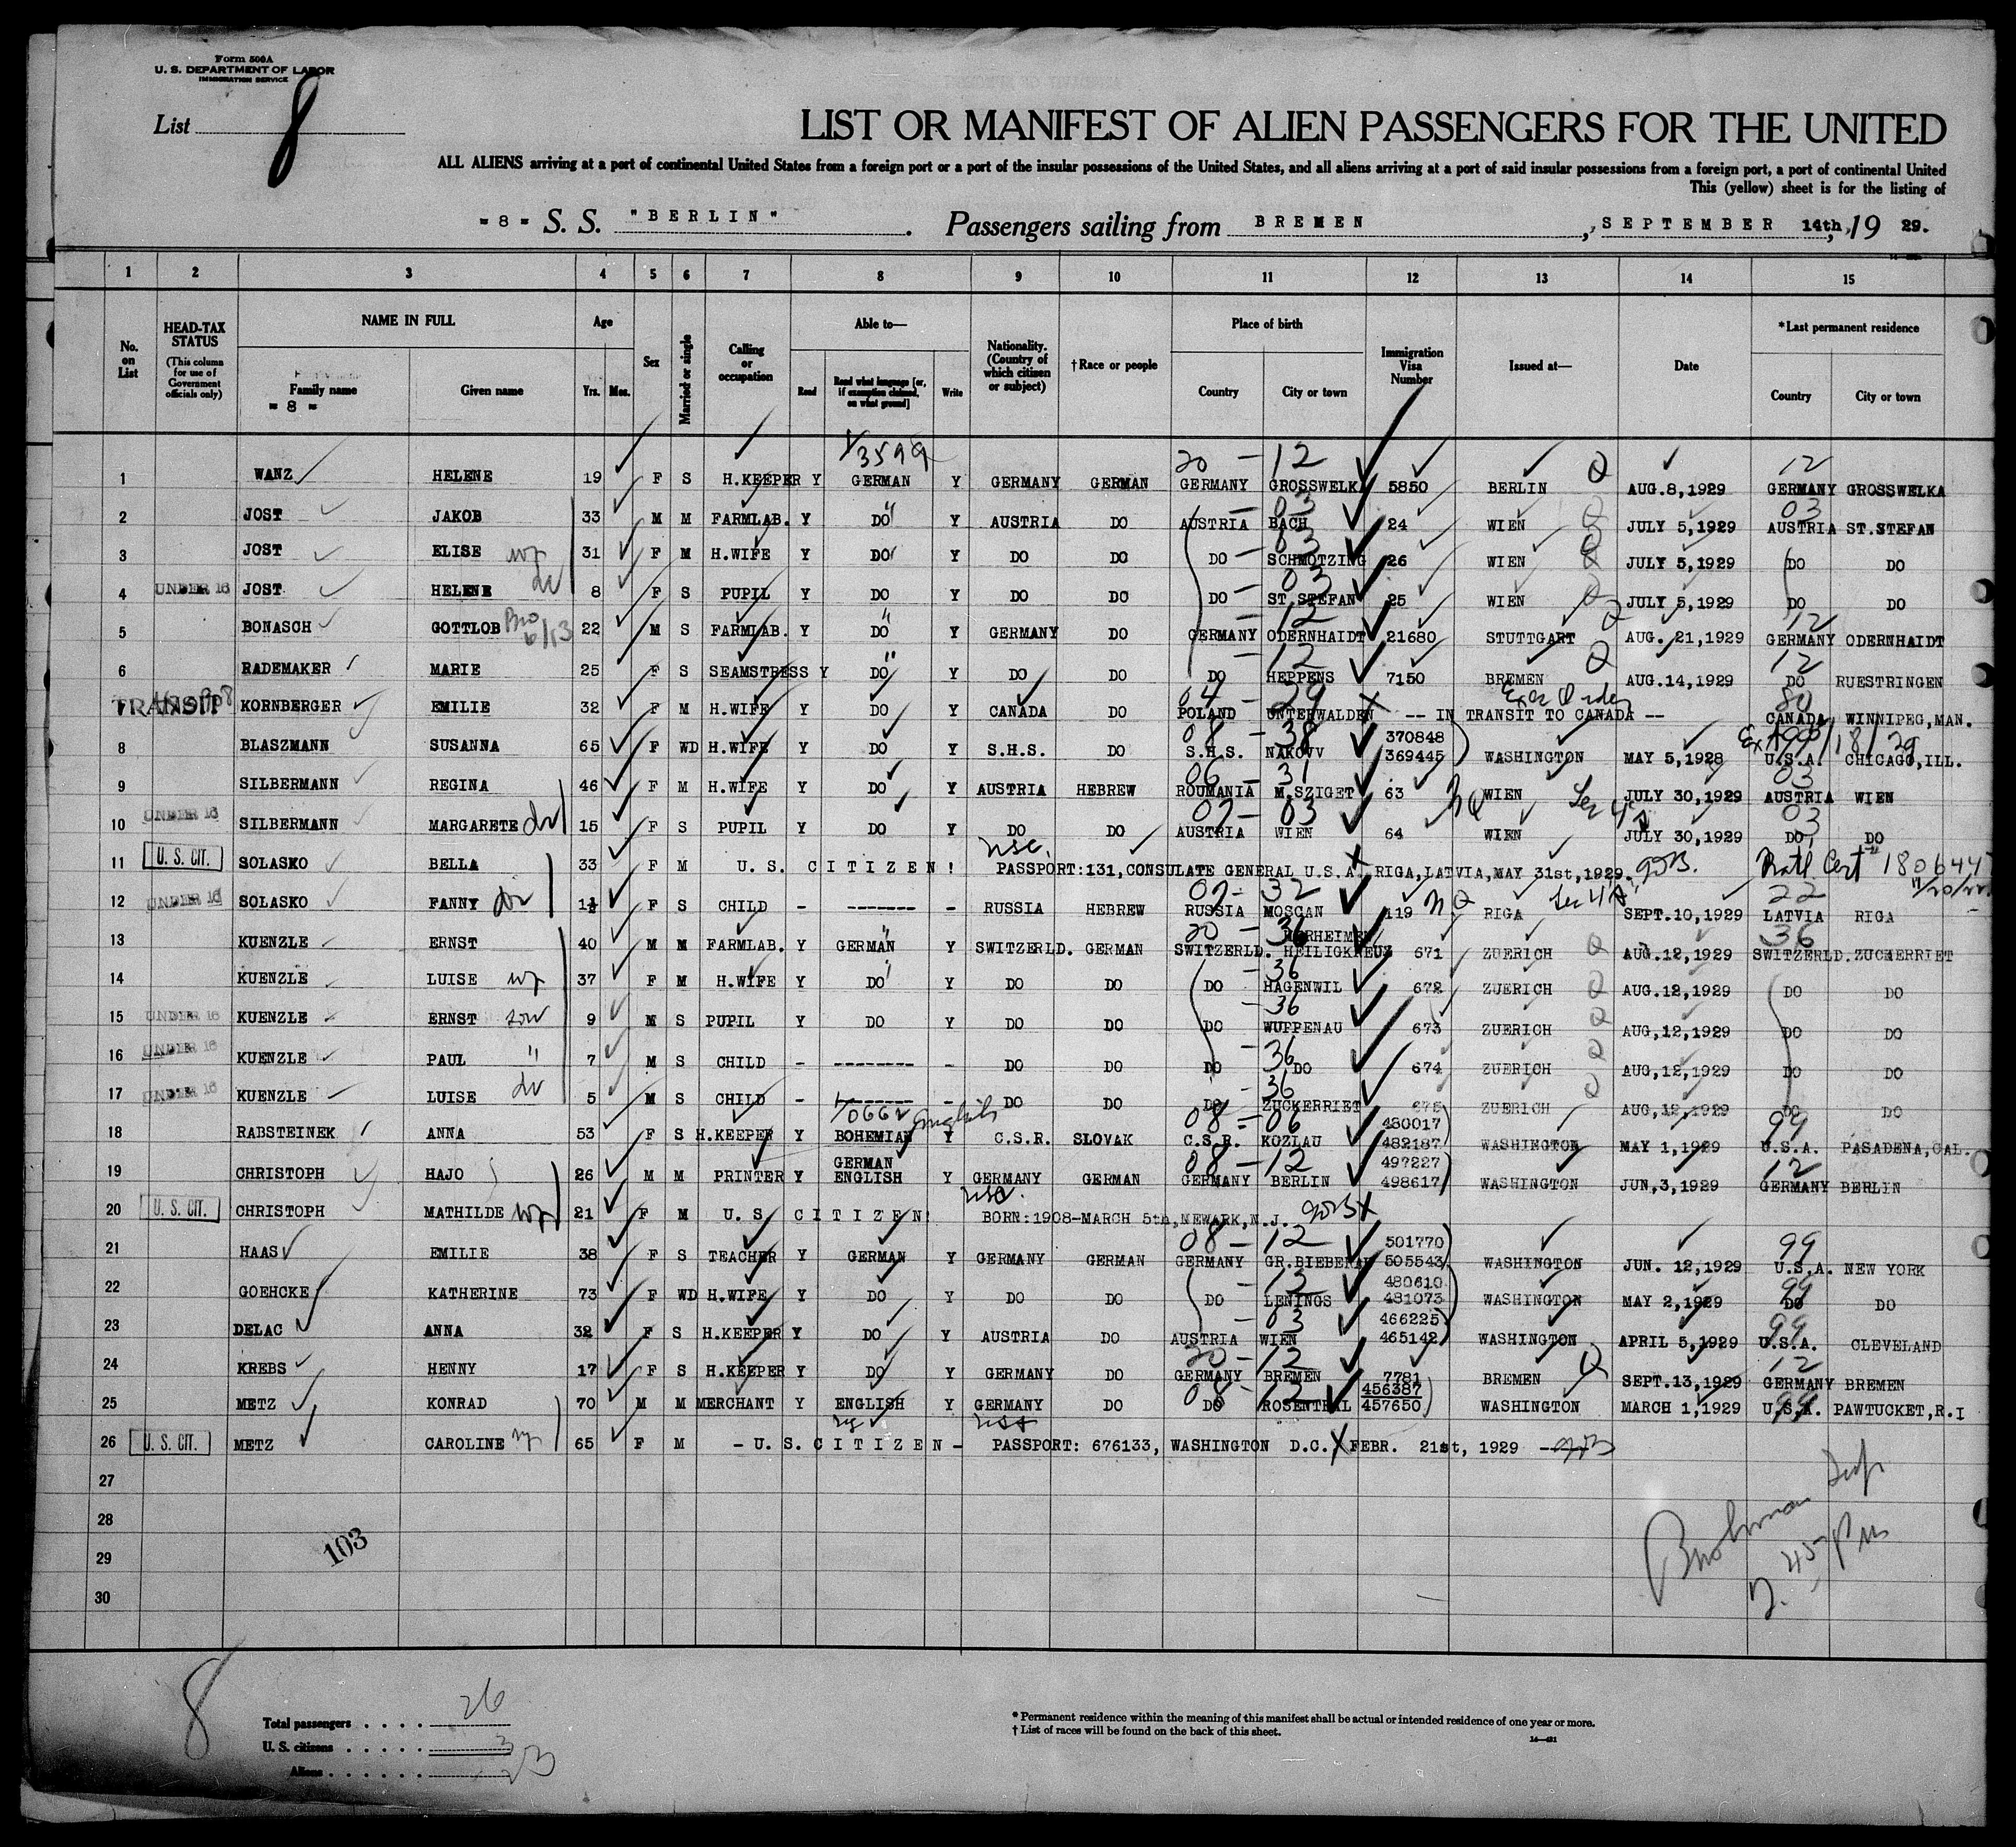 Form 500A
U. S. DEPARTMENT OF LABOR
IMMIGRATION SERVICE
List 8
LIST OR MANIFEST OF ALIEN PASSENGERS FOR THE UNITED
ALL ALIENS arriving at a port of continental United States from a foreign port or a port of the insular possessions of the United States, and all aliens arriving at a port of said insular possessions from a foreign port, a port of continental United
This (yellow) sheet is for the listing of
= 8 = S. S. "BERLIN". Passengers sailing from BREMEN, SEPTEMBER 14th, 19 29.
1 2 3 4 5 6 7 8 9 10 11 12 13 14 15
No. on List HEAD-TAX STATUS (This column for use of Government officials only) NAME IN FULL Family name Given name Age Yrs. Mos. Sex Married or single Calling or occupation Able to— Read Read what language [or, if exemption claimed, on what ground] Write Nationality. (Country of which citizen or subject) †Race or people Place of birth Country City or town Immigration Visa Number Issued at— Date *Last permanent residence Country City or town
= 8 =
3599
20 - 12 12
1 WANZ HELENE 19 F S H.KEEPER Y GERMAN Y GERMANY GERMAN GERMANY GROSSWELKA 5850 BERLIN AUG.8,1929 GERMANY GROSSWELKA
03 03
2 JOST JAKOB 33 M M FARMLAB. Y DO Y AUSTRIA DO AUSTRIA BACH 24 WIEN JULY 5,1929 AUSTRIA ST.STEFAN
03
3 JOST ELISE wf 31 F M H.WIFE Y DO Y DO DO DO SCHMOTZING 26 WIEN JULY 5,1929 DO DO
03
4 UNDER 16 JOST HELENE 8 F S PUPIL Y DO Y DO DO DO ST.STEFAN 25 WIEN JULY 5,1929 DO DO
12 12
5 BONASCH GOTTLOB 22 M S FARMLAB. Y DO Y GERMANY DO GERMANY ODERNHAIDT 21680 STUTTGART AUG. 21,1929 GERMANY ODERNHAIDT
12 12
6 RADEMAKER MARIE 25 F S SEAMSTRESS Y DO Y DO DO DO HEPPENS 7150 BREMEN AUG.14,1929 DO RUESTRINGEN
04 - 29 80
7 TRANSIT KORNBERGER EMILIE 32 F M H.WIFE Y DO Y CANADA DO POLAND UNTERWALDEN -- IN TRANSIT TO CANADA -- CANADA WINNIPEG,MAN.
08 - 38 370848
8 BLASZMANN SUSANNA 65 F WD H.WIFE Y DO Y S.H.S. DO S.H.S. NAKOVV 369445 WASHINGTON MAY 5,1928 U.S.A. CHICAGO,ILL.
06 - 31 03
9 SILBERMANN REGINA 46 F M H.WIFE Y DO Y AUSTRIA HEBREW ROUMANIA M.SZIGET 63 WIEN JULY 30,1929 AUSTRIA WIEN
07 - 03 03
10 UNDER 16 SILBERMANN MARGARETE 15 F S PUPIL Y DO Y DO DO AUSTRIA WIEN 64 WIEN JULY 30,1929 DO DO
11 U. S. CIT. SOLASKO BELLA 33 F M U.S. CITIZEN! PASSPORT:131,CONSULATE GENERAL U.S.A. RIGA,LATVIA,MAY 31st,1929. Natl. Cert
07 - 32 22
12 UNDER 16 SOLASKO FANNY F S CHILD - ------- - RUSSIA HEBREW RUSSIA MOSCAN 119 RIGA SEPT.10,1929 LATVIA RIGA
20 - 36 36
13 KUENZLE ERNST 40 M M FARMLAB. Y GERMAN Y SWITZERLD. GERMAN SWITZERLD. HEILIGKREUZ 671 ZUERICH AUG.12,1929 SWITZERLD. ZUCKERRIET
36
14 KUENZLE LUISE wf 37 F M H.WIFE Y DO Y DO DO DO HAGENWIL 672 ZUERICH AUG.12,1929 DO DO
36
15 UNDER 16 KUENZLE ERNST son 9 M S PUPIL Y DO Y DO DO DO WUPPENAU 673 ZUERICH AUG,12,1929 DO DO
36
16 UNDER 16 KUENZLE PAUL " 7 M S CHILD - -------- - DO DO DO DO 674 ZUERICH AUG,12,1929 DO DO
36
17 UNDER 16 KUENZLE LUISE 5 M S CHILD - -------- - DO DO DO ZUCKERRIET 675 ZUERICH AUG,12,1929 DO DO
08 - 06 480017 99
18 RABSTEINEK ANNA 53 F S H.KEEPER Y BOHEMIAN Y C.S.R. SLOVAK C.S.R. KOZLAU 482187 WASHINGTON MAY 1,1929 U.S.A. PASADENA,CAL.
GERMAN 08 - 12 497227 12
19 CHRISTOPH HAJO 26 M M PRINTER Y ENGLISH Y GERMANY GERMAN GERMANY BERLIN 498617 WASHINGTON JUN,3,1929 GERMANY BERLIN
20 U. S. CIT. CHRISTOPH MATHILDE wf 21 F M U.S. CITIZEN! BORN:1908-MARCH 5th,NEWARK,N.J.
08 - 12 501770 99
21 HAAS EMILIE 38 F S TEACHER Y GERMAN Y GERMANY GERMAN GERMANY 505543 WASHINGTON JUN. 12,1929 U.S.A. NEW YORK
12 480610 99
22 GOEHCKE KATHERINE 73 F WD H.WIFE Y DO Y DO DO DO LENINGS 481073 WASHINGTON MAY 2,1929 DO DO
03 466225 99
23 DELAC ANNA 32 F S H.KEEPER Y DO Y AUSTRIA DO AUSTRIA WIEN 465142 WASHINGTON APRIL 5,1929 U.S.A. CLEVELAND
20 - 12 12
24 KREBS HENNY 17 F S H.KEEPER Y DO Y GERMANY DO GERMANY BREMEN 7781 BREMEN SEPT.13,1929 GERMANY BREMEN
08 - 12 456387 99
25 METZ KONRAD 70 M M MERCHANT Y ENGLISH Y GERMANY DO DO ROSENTHAL 457650 WASHINGTON MARCH 1,1929 U.S.A. PAWTUCKET,R.I
26 U. S. CIT. METZ CAROLINE wf 65 F M - U.S. CITIZEN - PASSPORT: 676133, WASHINGTON D.C. FEBR. 21st, 1929
27
28
29 103
30
8
Total passengers . . . . 26
U. S. citizens . . . . . 3
Aliens . . . . . . 23
* Permanent residence within the meaning of this manifest shall be actual or intended residence of one year or more.
† List of races will be found on the back of this sheet.